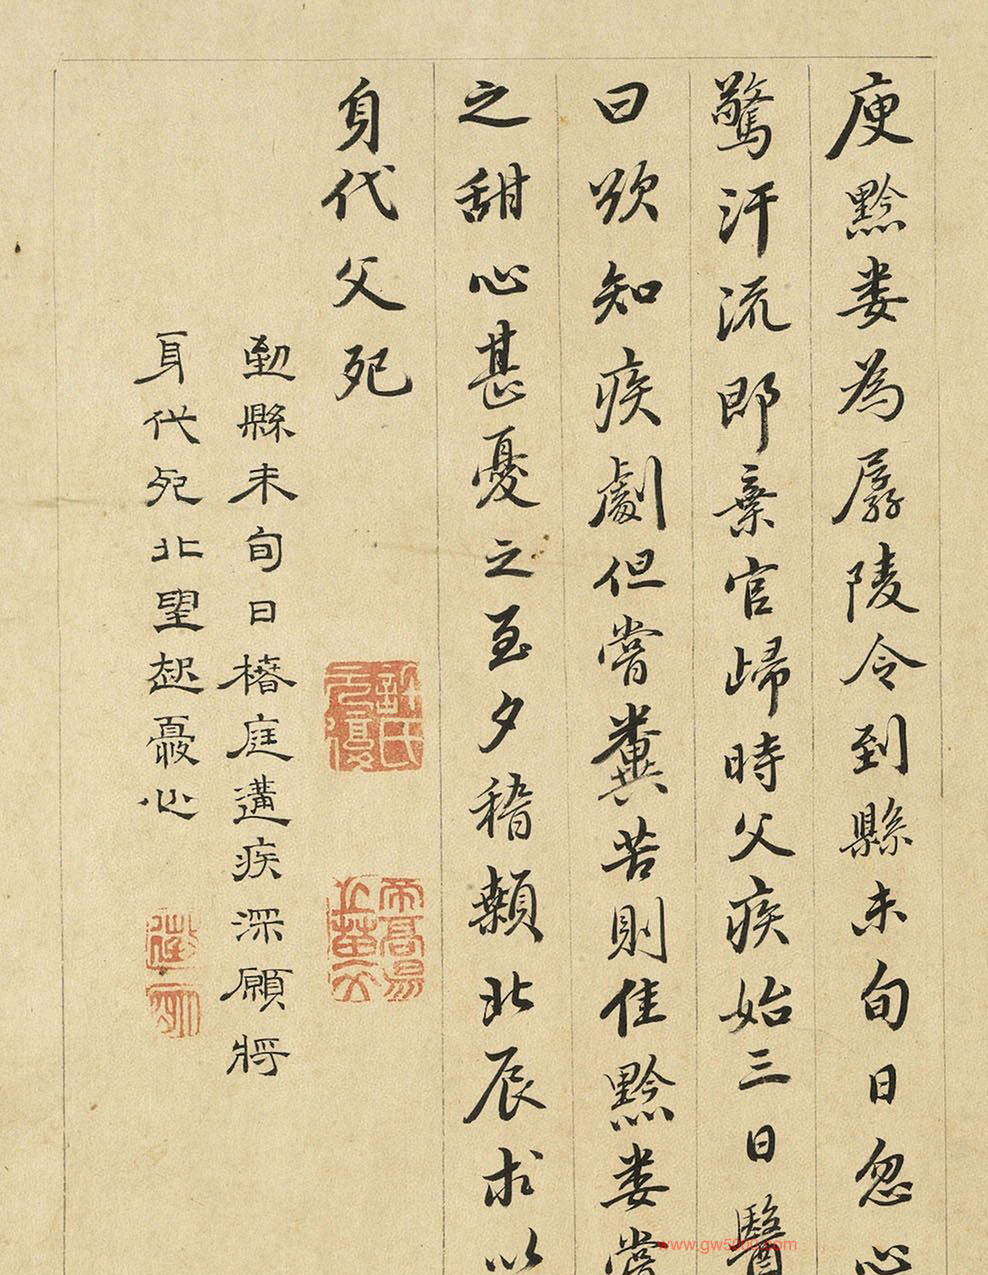 庾黔婁為孱陵令到縣未旬日忽心
驚汗流即棄官歸時父疾始三日醫
曰欲知疾劇但嘗糞苦則佳黔婁嘗
之甜心甚憂之至夕稽顙北辰求以
身代父死
到縣未旬日椿庭遘疾深願將
身代死北望起憂心
www.gw5000.com